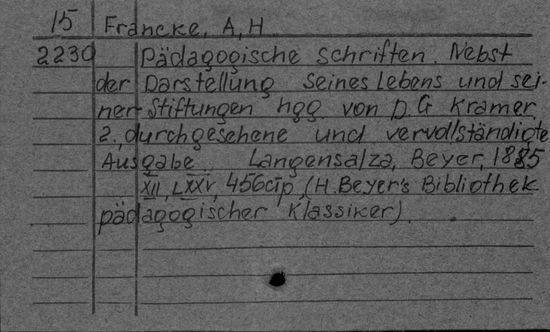 15 Francke, A, H
2230 Pädagogische Schriften. Nebst
der Darstellung seines Lebens und sei-
ner Stiftungen hgg. von D. G Kramer
2., durchgesehene und vervollständigte
Ausgabe Langensalza, Beyer, 1885
XII, LXXV, 456 стр, (H. Beyer's Bibliothek
pädagogischer Klassiker).